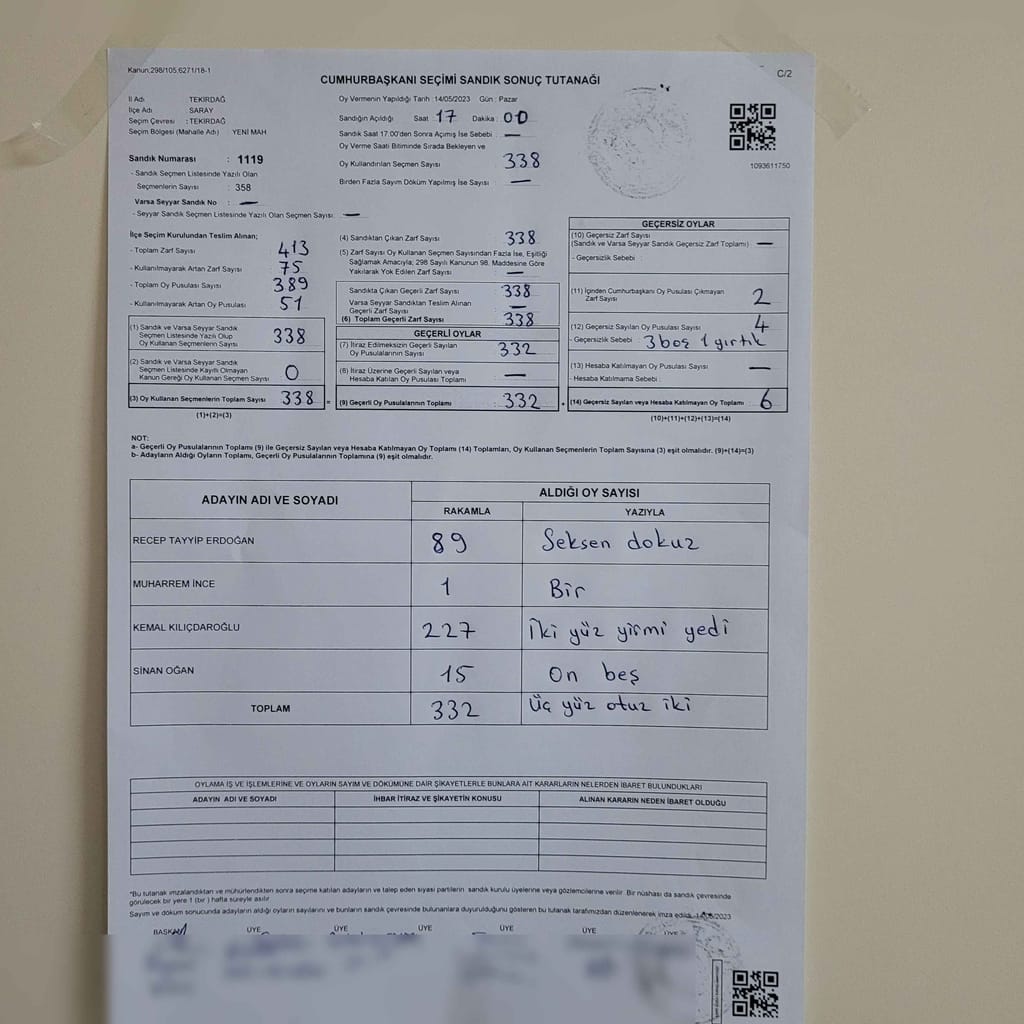 Kanun;298/105,6271/18-1
C/2
CUMHURBAŞKANI SEÇİMİ SANDIK SONUÇ TUTANAĞI
İl Adı TEKİRDAĞ
İlçe Adı SARAY
Seçim Çevresi : TEKİRDAĞ
Seçim Bölgesi (Mahalle Adı) YENİ MAH
Sandık Numarası : 1119
- Sandık Seçmen Listesinde Yazılı Olan
Seçmenlerin Sayısı : 358
Varsa Seyyar Sandık No : —
- Seyyar Sandık Seçmen Listesinde Yazılı Olan Seçmen Sayısı : —
Oy Vermenin Yapıldığı Tarih :14/05/2023 Gün : Pazar
Sandığın Açıldığı Saat :17 Dakika : 00
Sandık Saat 17.00'den Sonra Açımış İse Sebebi : —
Oy Verme Saati Bitiminde Sırada Bekleyen ve
Oy Kullandırılan Seçmen Sayısı : 338
Birden Fazla Sayım Döküm Yapılmış İse Sayısı : —
1093611750
İlçe Seçim Kurulundan Teslim Alınan;
- Toplam Zarf Sayısı : 413
- Kullanılmayarak Artan Zarf Sayısı : 75
- Toplam Oy Pusulası Sayısı : 389
- Kullanılmayarak Artan Oy Pusulası : 51
(1) Sandık ve Varsa Seyyar Sandık
Seçmen Listesinde Yazılı Olup
Oy Kullanan Seçmenlerin Sayısı : 338
(2) Sandık ve Varsa Seyyar Sandık
Seçmen Listesinde Kayıtlı Olmayan
Kanun Gereği Oy Kullanan Seçmen Sayısı : 0
(3) Oy Kullanan Seçmenlerin Toplam Sayısı : 338 =
(1)+(2)=(3)
(4) Sandıktan Çıkan Zarf Sayısı : 338
(5) Zarf Sayısı Oy Kullanan Seçmen Sayısından Fazla İse, Eşitliği
Sağlamak Amacıyla; 298 Sayılı Kanunun 98. Maddesine Göre
Yakılarak Yok Edilen Zarf Sayısı : —
Sandıkta Çıkan Geçerli Zarf Sayısı : 338
Varsa Seyyar Sandıktan Teslim Alınan
Geçerli Zarf Sayısı : —
(6) Toplam Geçerli Zarf Sayısı : 338
GEÇERLİ OYLAR
(7) İtiraz Edilmeksizin Geçerli Sayılan
Oy Pusulalarının Sayısı : 332
(8) İtiraz Üzerine Geçerli Sayılan veya
Hesaba Katılan Oy Pusulası Toplamı : —
(9) Geçerli Oy Pusulalarının Toplamı : 332 +
GEÇERSİZ OYLAR
(10) Geçersiz Zarf Sayısı
(Sandık ve Varsa Seyyar Sandık Geçersiz Zarf Toplamı) : —
- Geçersizlik Sebebi :
(11) İçinden Cumhurbaşkanı Oy Pusulası Çıkmayan
Zarf Sayısı : 2
(12) Geçersiz Sayılan Oy Pusulası Sayısı : 4
- Geçersizlik Sebebi : 3 boş 1 yırtık
(13) Hesaba Katılmayan Oy Pusulası Sayısı : —
- Hesaba Katılmama Sebebi :
(14) Geçersiz Sayılan veya Hesaba Katılmayan Oy Toplamı : 6
(10)+(11)+(12)+(13)=(14)
NOT:
a- Geçerli Oy Pusulalarının Toplamı (9) ile Geçersiz Sayılan veya Hesaba Katılmayan Oy Toplamı (14) Toplamları, Oy Kullanan Seçmenlerin Toplam Sayısına (3) eşit olmalıdır. (9)+(14)=(3)
b- Adayların Aldığı Oyların Toplamı, Geçerli Oy Pusulalarının Toplamına (9) eşit olmalıdır.
ADAYIN ADI VE SOYADI ALDIĞI OY SAYISI
RAKAMLA YAZIYLA
RECEP TAYYİP ERDOĞAN 89 Seksen dokuz
MUHARREM İNCE 1 Bir
KEMAL KILIÇDAROĞLU 227 İki yüz yirmi yedi
SİNAN OĞAN 15 On beş
TOPLAM 332 Üç yüz otuz iki
OYLAMA İŞ VE İŞLEMLERİNE VE OYLARIN SAYIM VE DÖKÜMÜNE DAİR ŞİKAYETLERLE BUNLARA AİT KARARLARIN NELERDEN İBARET BULUNDUKLARI
ADAYIN ADI VE SOYADI İHBAR İTİRAZ VE ŞİKAYETİN KONUSU ALINAN KARARIN NEDEN İBARET OLDUĞU
*Bu tutanak imzalandıktan ve mühürlendikten sonra seçime katılan adayların ve talep eden siyasi partilerin sandık kurulu üyelerine veya gözlemcilerine verilir. Bir nüshası da sandık çevresinde
görülecek bir yere 1 (bir) hafta süreyle asılır
Sayım ve döküm sonucunda adayların aldığı oyların sayılarını ve bunların sandık çevresinde bulunanlara duyurulduğunu gösteren bu tutanak tarafımızdan düzenlenerek imza edildi. 14/05/2023
BAŞKAN ÜYE ÜYE ÜYE ÜYE ÜYE ÜYE